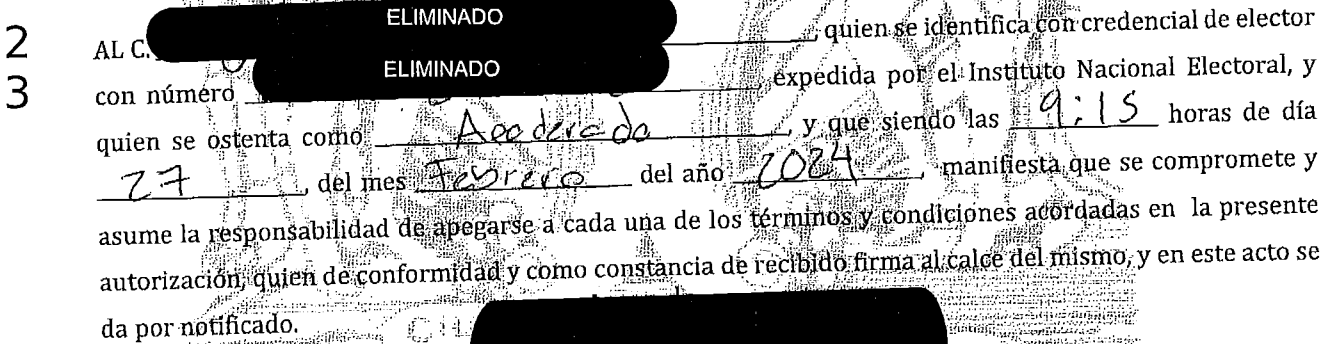 ELIMINADO
2 AL C. , quien se identifica con credencial de elector
ELIMINADO
3 con número , expedida por el Instituto Nacional Electoral, y
quien se ostenta como Apoderado , y que siendo las 9:15 horas de día
27 , del mes Febrero del año 2024 , manifiesta que se compromete y
asume la responsabilidad de apegarse a cada una de los términos y condiciones acordadas en la presente
autorización, quien de conformidad y como constancia de recibido firma al calce del mismo, y en este acto se
da por notificado.